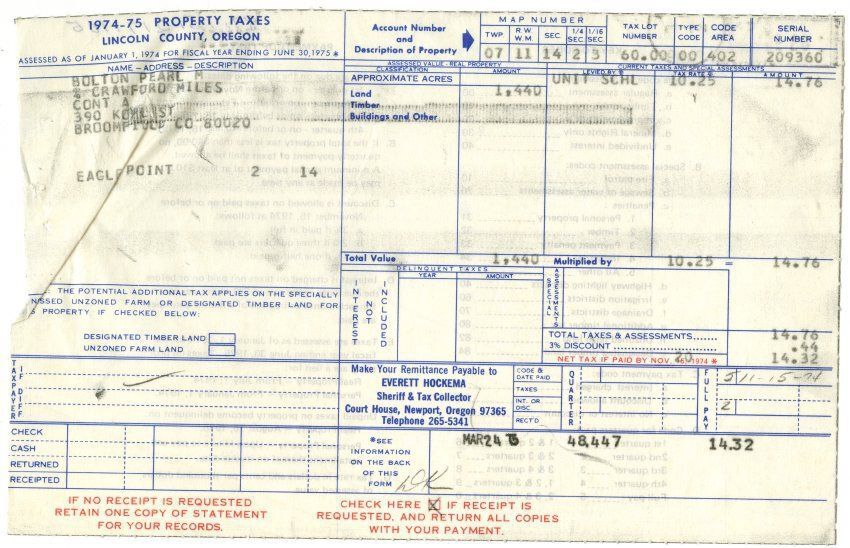 1974-75 PROPERTY TAXES
LINCOLN COUNTY, OREGON
ASSESSED AS OF JANUARY 1, 1974 FOR FISCAL YEAR ENDING JUNE 30, 1975 *
Account Number and Description of Property
MAP NUMBER
TWP R.W W.M. SEC 1/4 SEC 1/16 SEC TAX LOT NUMBER TYPE CODE CODE AREA SERIAL NUMBER
07 11 14 2 3 60.00 00 402 209360
NAME – ADDRESS – DESCRIPTION
ASSESSED VALUE - REAL PROPERTY
CLASSIFICATION AMOUNT
CURRENT TAXES AND SPECIAL ASSESSMENTS
LEVIED BY TAX RATE AMOUNT
BOLTON PEARL M
% CRAWFORD MILES
CONT A
390 KOHL ST
BROOMFIELD CO 80020
EAGLE POINT 2 14
APPROXIMATE ACRES
Land 1,440
Timber
Buildings and Other
UNIT SCHL 10.25 14.76
Total Value 1,440 Multiplied by 10.25 = 14.76
DELINQUENT TAXES
YEAR AMOUNT
INTEREST NOT INCLUDED
SPECIAL ASSESSMENTS
THE POTENTIAL ADDITIONAL TAX APPLIES ON THE SPECIALLY
SSED UNZONED FARM OR DESIGNATED TIMBER LAND FOR
S PROPERTY IF CHECKED BELOW:
DESIGNATED TIMBER LAND
UNZONED FARM LAND
TOTAL TAXES & ASSESSMENTS....... 14.76
3% DISCOUNT ...... .44
NET TAX IF PAID BY NOV. 20 1974 * 14.32
TAXPAYER IF DIFF
Make Your Remittance Payable to
EVERETT HOCKEMA
Sheriff & Tax Collector
Court House, Newport, Oregon 97365
Telephone 265-5341
CODE & DATE PAID
TAXES
INT. OR DISC.
RECT'D
QUARTER
FULL PAY
5 11-15-74
2
CHECK
CASH
RETURNED
RECEIPTED
*SEE INFORMATION ON THE BACK OF THIS FORM
MAR 24 75 48,447 14.32
IF NO RECEIPT IS REQUESTED
RETAIN ONE COPY OF STATEMENT
FOR YOUR RECORDS.
CHECK HERE X IF RECEIPT IS
REQUESTED, AND RETURN ALL COPIES
WITH YOUR PAYMENT.